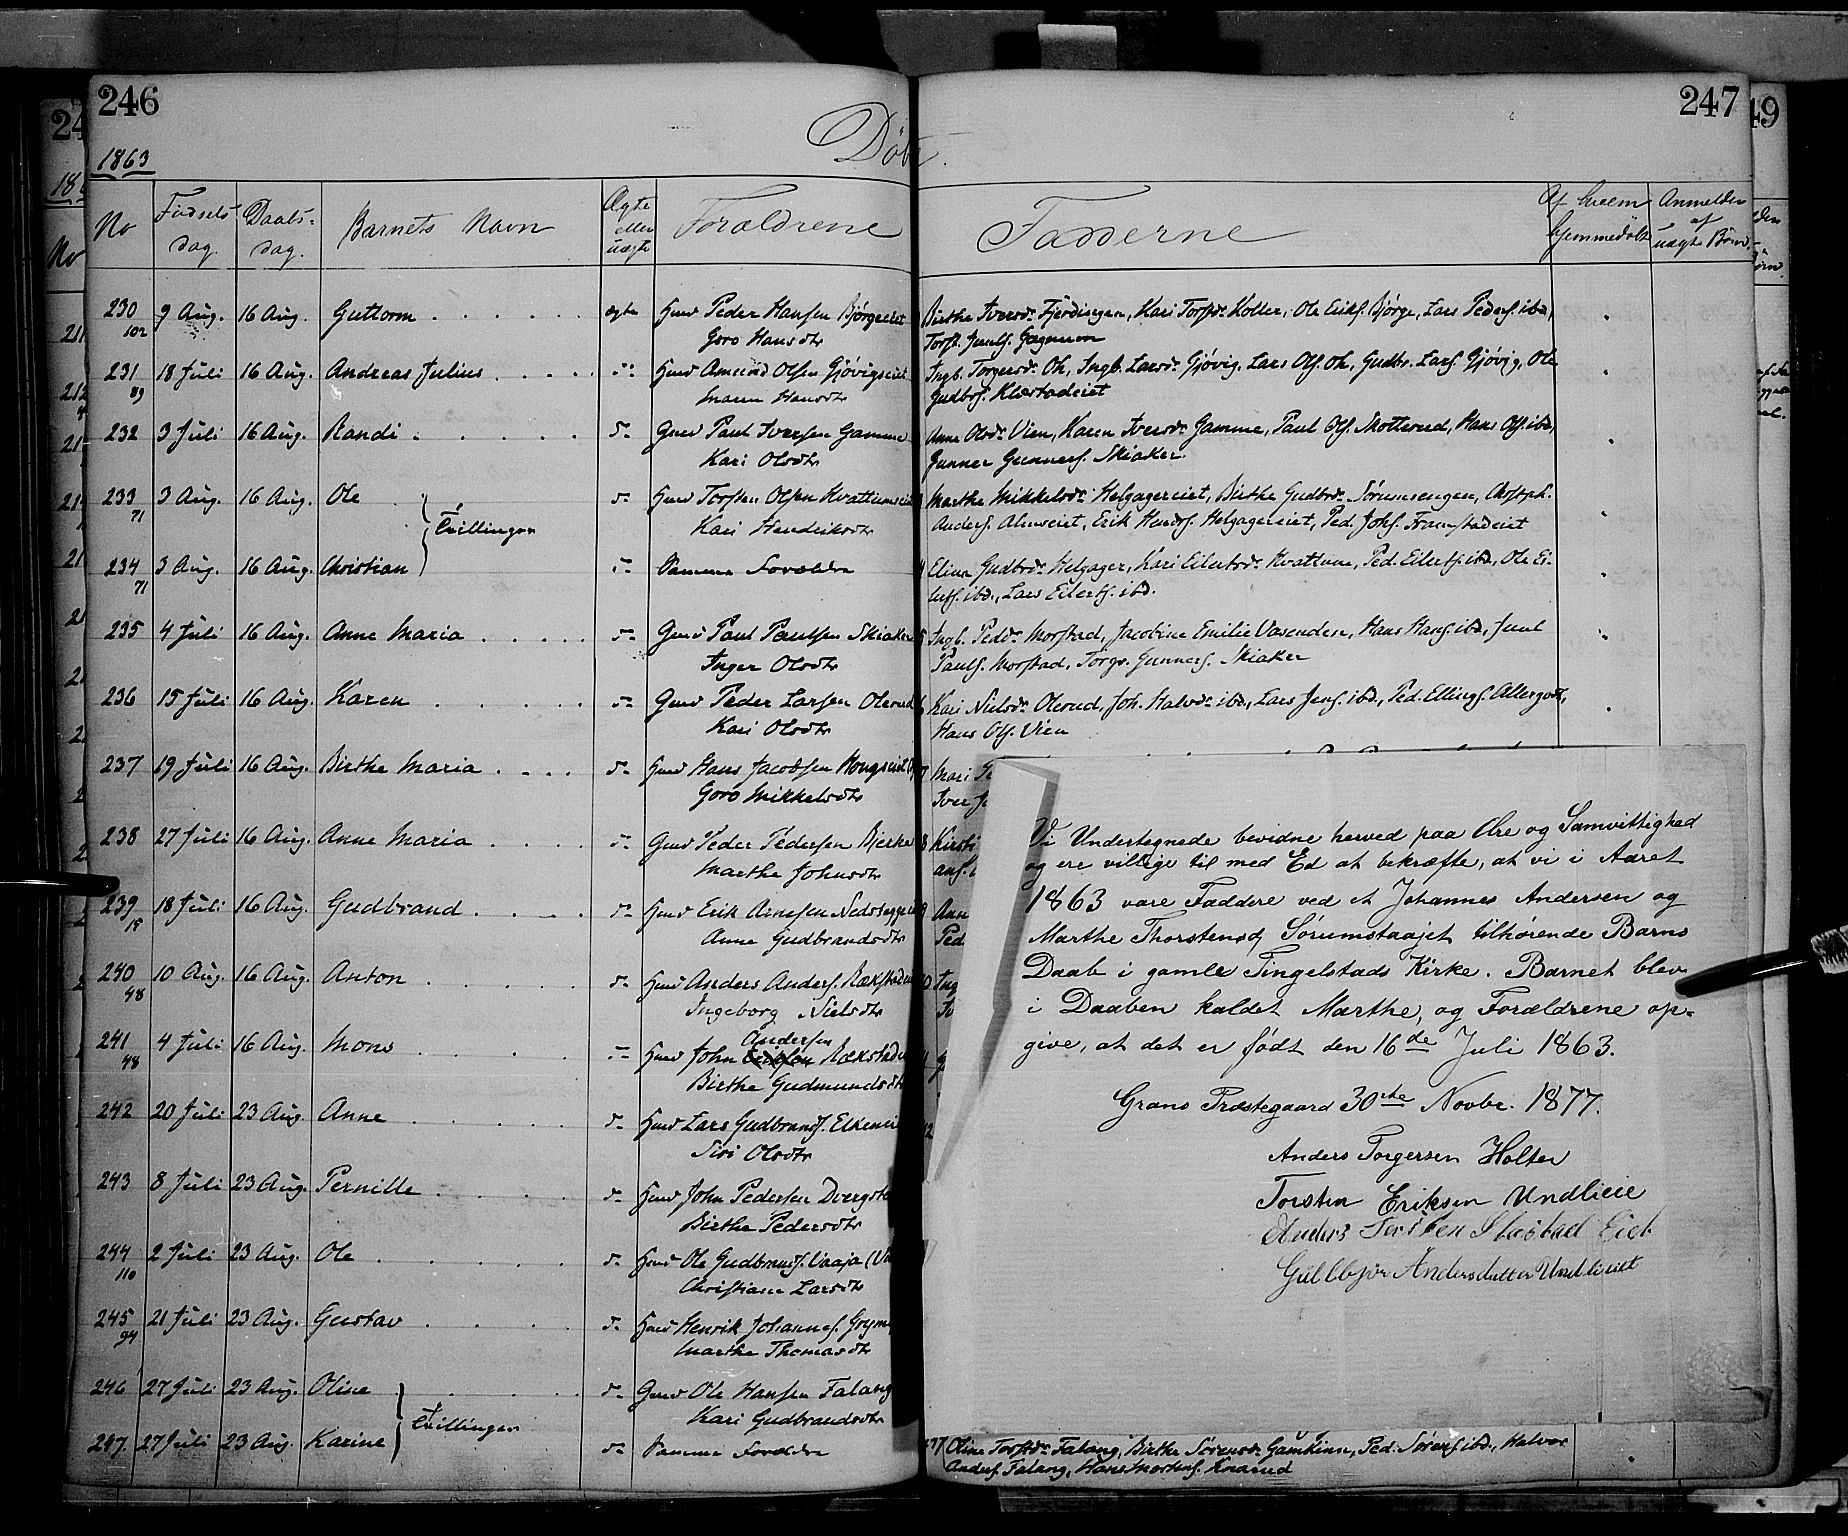 246
1863
Døbte
No
Fødsels-dag
Daabs-dag.
Barnets Navn
Ægte eller uægte
Forældrene
230
102
9 Aug.
16 Aug.
Guttorm
ægte
Huus Peder Hansen Bjørgeeiet
Goro Hansdtr
231
89
18 Juli
16 Aug.
Andreas Julius
Amund Olsen Gjøvigseiet
Maren Hansdtr
232
3 Juli
16 Aug.
Randi
Paul Iversen Gamme
Kari Olsdtr
233
71
3 Aug.
16 Aug.
Ole
Tvillinger
Torsten Olsen Hvattumseiet
Kari Hendriksdtr
234
71
3 Aug.
16 Aug.
Christian
Samme Forældre
235
4 Juli
16 Aug.
Anne Maria
Paul Paulsen Skiaker
Inger Olsdtr
236
15 Juli
16 Aug.
Karen
Peder Larsen Olerud
Kari Olsdtr
237
19 Juli
16 Aug.
Birthe Maria
Hans Jacobsen
Goro Mikkelsdtr
238
27 Juli
16 Aug.
Anne Maria
Peder Pedersen Bjerke
Marthe Johnsdtr
239
18 Juli
16 Aug.
Gudbrand
Erik Arnesen
Anne Gudbrandsdtr
240
48
10 Aug.
16 Aug.
Anton
Anders Anders. Rækstad
Ingeborg Nielsdtr
241
48
4 Juli
16 Aug.
Mons
Andersen
John Rækstad
Birthe Gudmundsdtr
242
20 Juli
23 Aug.
Anne
Lars Gudbrands.
Siri Olsdtr
243
8 Juli
23 Aug.
Pernille
John Pedersen
Birthe Pedersdtr
244
110
2 Juli
23 Aug.
Ole
Ole Gudbrands. Vaaja
Christiane Larsdtr
245
94
21 Juli
23 Aug.
Gustav
Henrik Johannes.
Marthe Thomasdtr
246
27 Juli
23 Aug.
Oline
Tvillinger
Ole Hansen Falang
Kari Gudbrandsdtr
247
27 Juli
23 Aug.
Karine
Samme Forældre
247
Fadderne
hjemmedøbt
Anmelder af uægte Børn.
Birthe Iversdr. Fjerdingen, Kari Torstdr. Koller, Ole Eriks. Bjørge, Lars Peders. ibd,
Ingb. Torgersdr. Oh, Ingb. Larsdr. Gjøvig, Lars Ols. Oh, Gudbr. Lars. Gjøvig, Ole
Gudbrs. Klæstadeiet
Anne Olsdr. Vien, Karen Iversdr. Gamme, Paul Ols. Skotterud, Hans Ols. ibd,
Gunner Gunners. Skiaker.
Marthe Mikkelsdr. Helgagereiet, Birthe Gudbrdr. Sørumsengen, Christoph.
Anders. Almseiet, Erik Hendrs. Helgagereiet, Ped. Johs. Framstadeiet
Eline Gudbrdr. Helgager, Kari Eilertsdr. Hvattum, Ped. Eilerts. ibd, Ole Ei-
lerts. ibd., Lars Eilerts. ibd.
Ingb. Pedsdr. Morstad, Jacobine Emilie Vasenden, Hans Hans. ibd, Juul
Pauls. Morstad, Torgr. Gunners. Skiaker
Kari Nielsdr. Olerud, Joh. Halvdr. ibd, Lars Jens. ibd, Ped. Ellings. Allergodt,
Hans Ols. Vien
Mari
Iver
Kirsti
Ped.
Vi Undertegnede bevidne herved paa Ære og Samvittighed
og ere villige til med Ed at bekræfte, at vi i Aaret
1863 vare Faddere ved et Johannes Andersen og
Marthe Thorstensd, Sørumstaajet tilhørende Barns
Daab i gamle Tingelstads Kirke. Barnet blev
i Daaben kaldet Marthe, og Forældrene op-
give, at det er født den 16de Juli 1863.
Grans Præstegaard 30te Novbr. 1877.
Anders Torgersen Holter
Torsten Eriksen Undlieie
Anders Torsten Eiet
Gullbjør Andersdatter Undlieiet
Oline Torstdr. Falang, Birthe Sørensdr. Gamkinn, Ped. Sørens. ibd., Halvor
Anders. Falang, Hans Mortens. Knarud